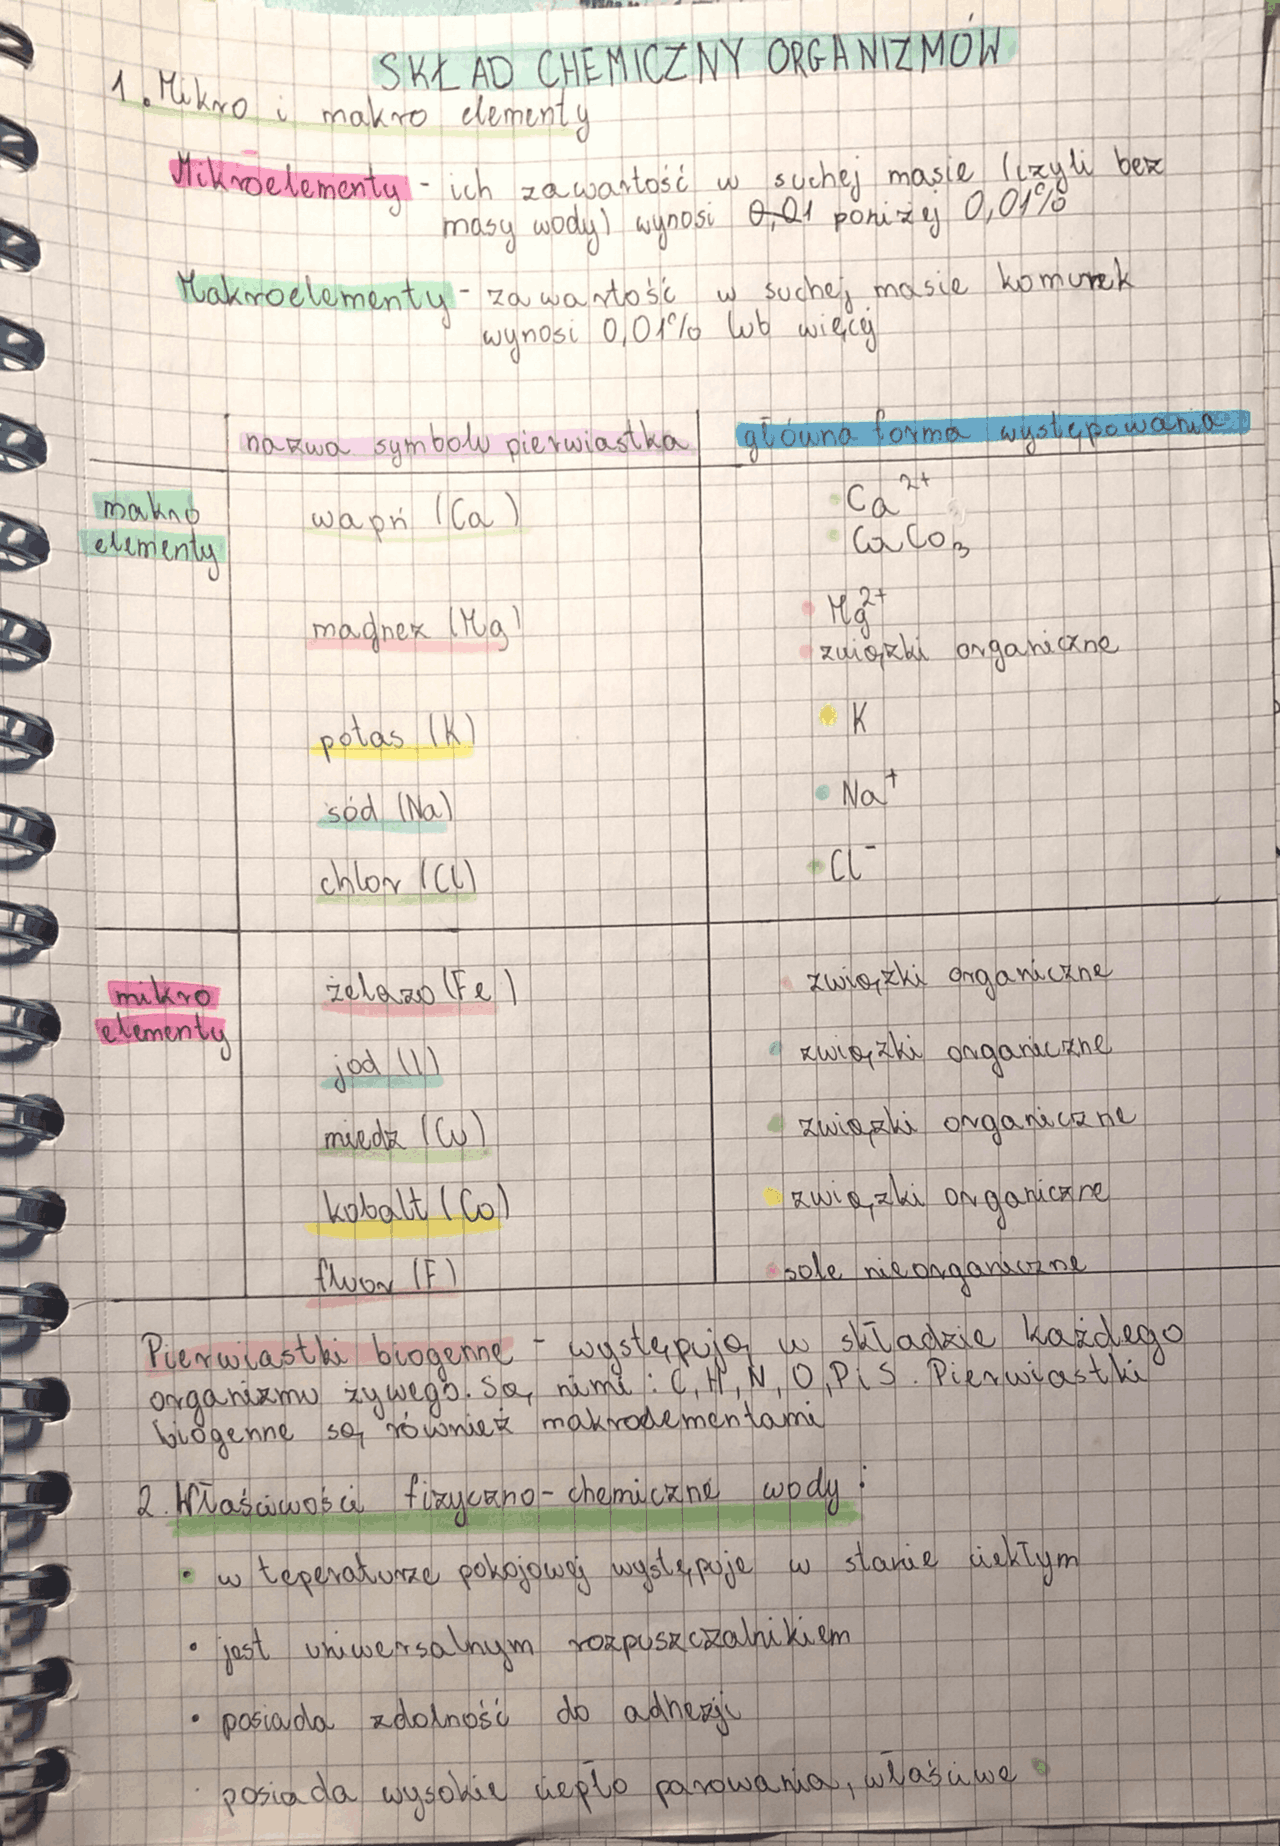 SKŁAD CHEMICZNY ORGANIZMÓW
1. Mikro i makro elementy
Mikroelementy - ich zawartość w suchej masie (czyli bez
masy wody) wynosi 0,01 poniżej 0,01%
Makroelementy - zawartość w suchej masie komurek
wynosi 0,01% lub więcej
nazwa symbolu pierwiastka
główna forma występowania
makro
elementy
wapń (Ca)
Ca²⁺
CaCo₃
magnez (Mg)
Mg²⁺
związki organiczne
potas (K)
K
sód (Na)
Na⁺
chlor (Cl)
Cl⁻
mikro
elementy
żelazo (Fe)
związki organiczne
jod (I)
związki organiczne
miedz (Cu)
związki organiczne
kobalt (Co)
związki organiczne
fluor (F)
sole nieorganiczne
Pierwiastki biogenne - występują w składzie każdego
organizmu żywego. Są nimi : C, H, N, O, P i S. Pierwiastki
biogenne są również makroelementami
2. Właściwości fizyczno-chemiczne wody :
• w teperaturze pokojowej występuje w stanie ciekłym
• jest uniwersalnym rozpuszczalnikiem
• posiada zdolność do adhezji
• posiada wysokie ciepło parowania, właściwe